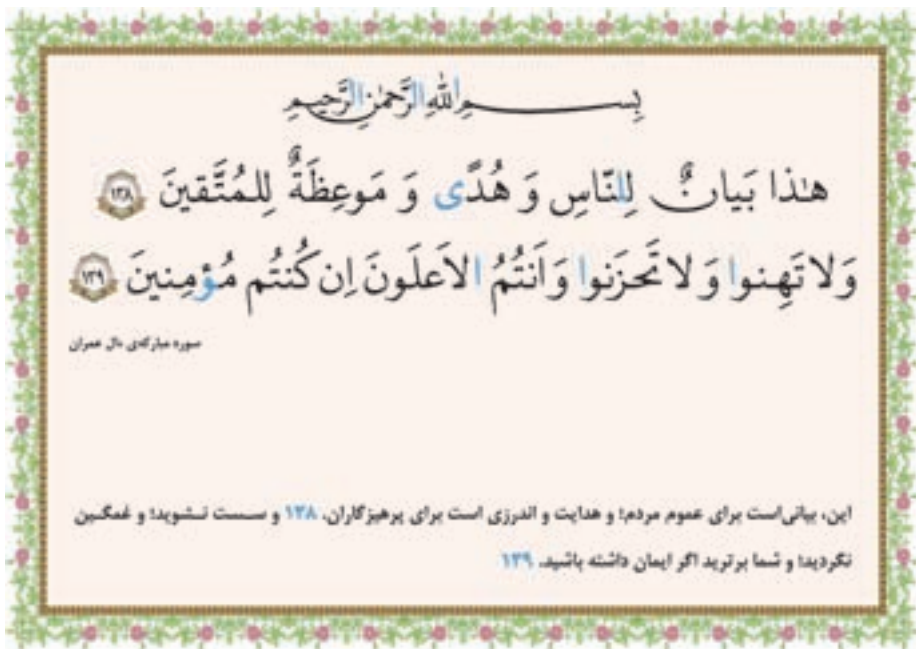 بِسـمِ اللّٰهِ الرَّحمٰنِ الرَّحیمِ
هـٰذا بَیانٌ لِلنّاسِ وَ هُدًی وَ مَوعِظَةٌ لِلمُتَّقینَ ۱۳۸
وَلا تَهِنوا وَ لا تَحزَنوا وَ اَنتُمُ الاَعلَونَ اِن کُنتُم مُؤمِنینَ ۱۳۹
سوره مبارکه‌ی ءال عمران
این، بیانی‌است برای عموم مردم؛ و هدایت و اندرزی است برای پرهیزگاران. ۱۳۸ و سست نشوید؛ و غمگین
نگردید؛ و شما برترید اگر ایمان داشته باشید. ۱۳۹